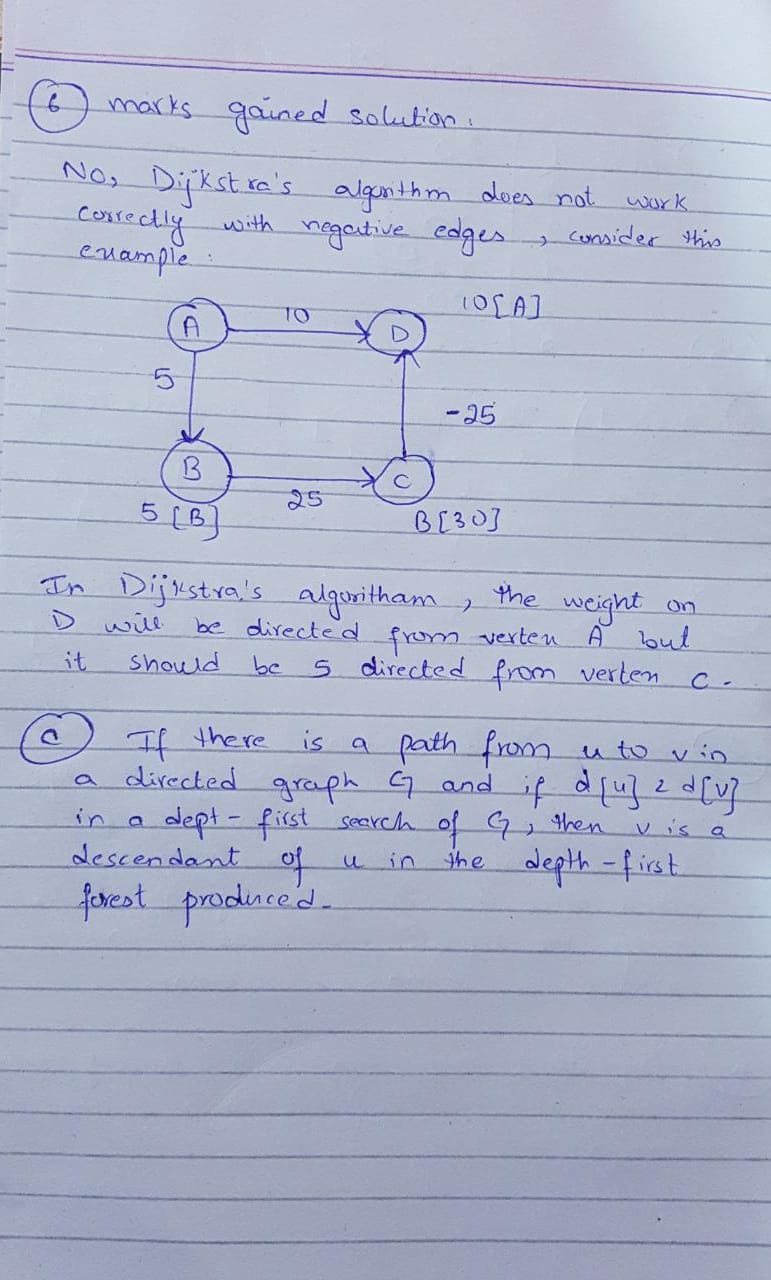 6 marks gained solution.
No, Dijkstra's algorithm does not work
correctly with negative edges, consider this
example:
10 10[A]
A D
5
-25
B C
25
5 [B] B[30]
In Dijkstra's algoritham, the weight on
D will be directed from vertex A but
it should be 5 directed from vertex C.
C If there is a path from u to v in
a directed graph G and if d[u] < d[v]
in a dept-first search of G, then v is a
descendant of u in the depth-first
forest produced.